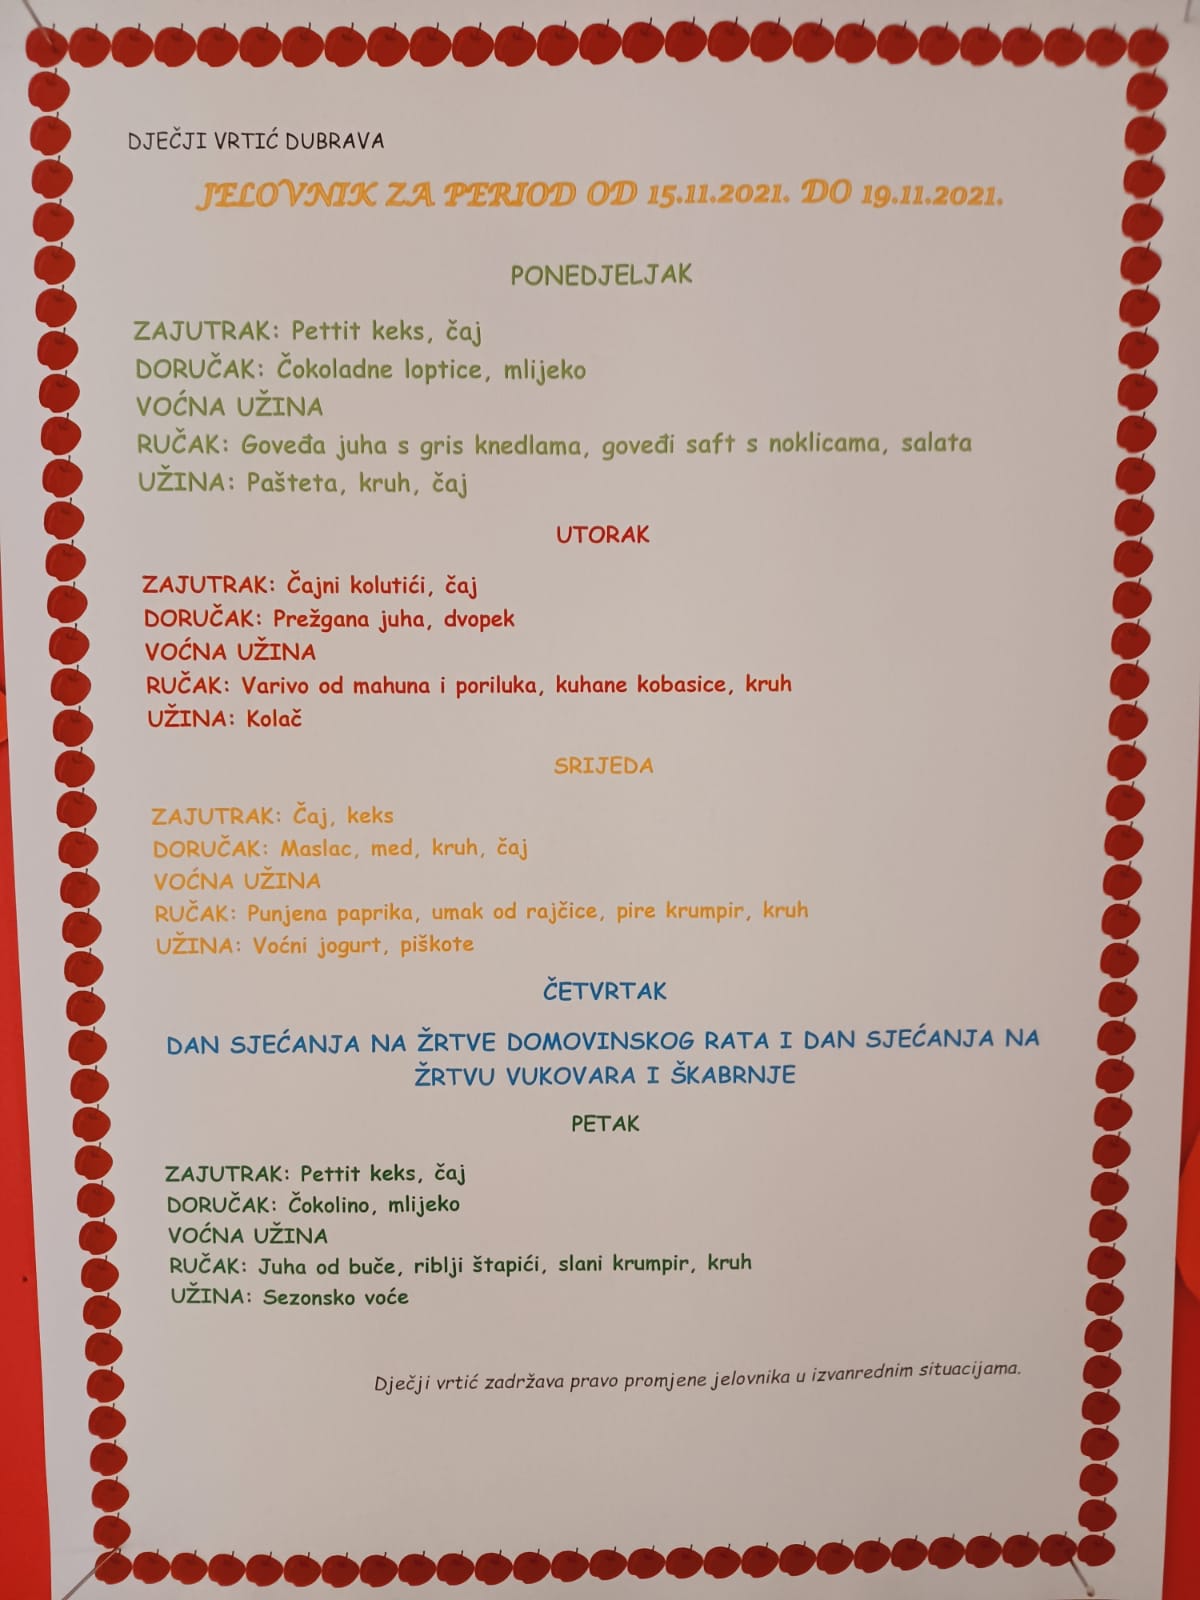 DJEČJI VRTIĆ DUBRAVA
JELOVNIK ZA PERIOD OD 15.11.2021. DO 19.11.2021.
PONEDJELJAK
ZAJUTRAK: Pettit keks, čaj
DORUČAK: Čokoladne loptice, mlijeko
VOĆNA UŽINA
RUČAK: Goveđa juha s gris knedlama, goveđi saft s noklicama, salata
UŽINA: Pašteta, kruh, čaj
UTORAK
ZAJUTRAK: Čajni kolutići, čaj
DORUČAK: Prežgana juha, dvopek
VOĆNA UŽINA
RUČAK: Varivo od mahuna i poriluka, kuhane kobasice, kruh
UŽINA: Kolač
SRIJEDA
ZAJUTRAK: Čaj, keks
DORUČAK: Maslac, med, kruh, čaj
VOĆNA UŽINA
RUČAK: Punjena paprika, umak od rajčice, pire krumpir, kruh
UŽINA: Voćni jogurt, piškote
ČETVRTAK
DAN SJEĆANJA NA ŽRTVE DOMOVINSKOG RATA I DAN SJEĆANJA NA
ŽRTVU VUKOVARA I ŠKABRNJE
PETAK
ZAJUTRAK: Pettit keks, čaj
DORUČAK: Čokolino, mlijeko
VOĆNA UŽINA
RUČAK: Juha od buče, riblji štapići, slani krumpir, kruh
UŽINA: Sezonsko voće
Dječji vrtić zadržava pravo promjene jelovnika u izvanrednim situacijama.